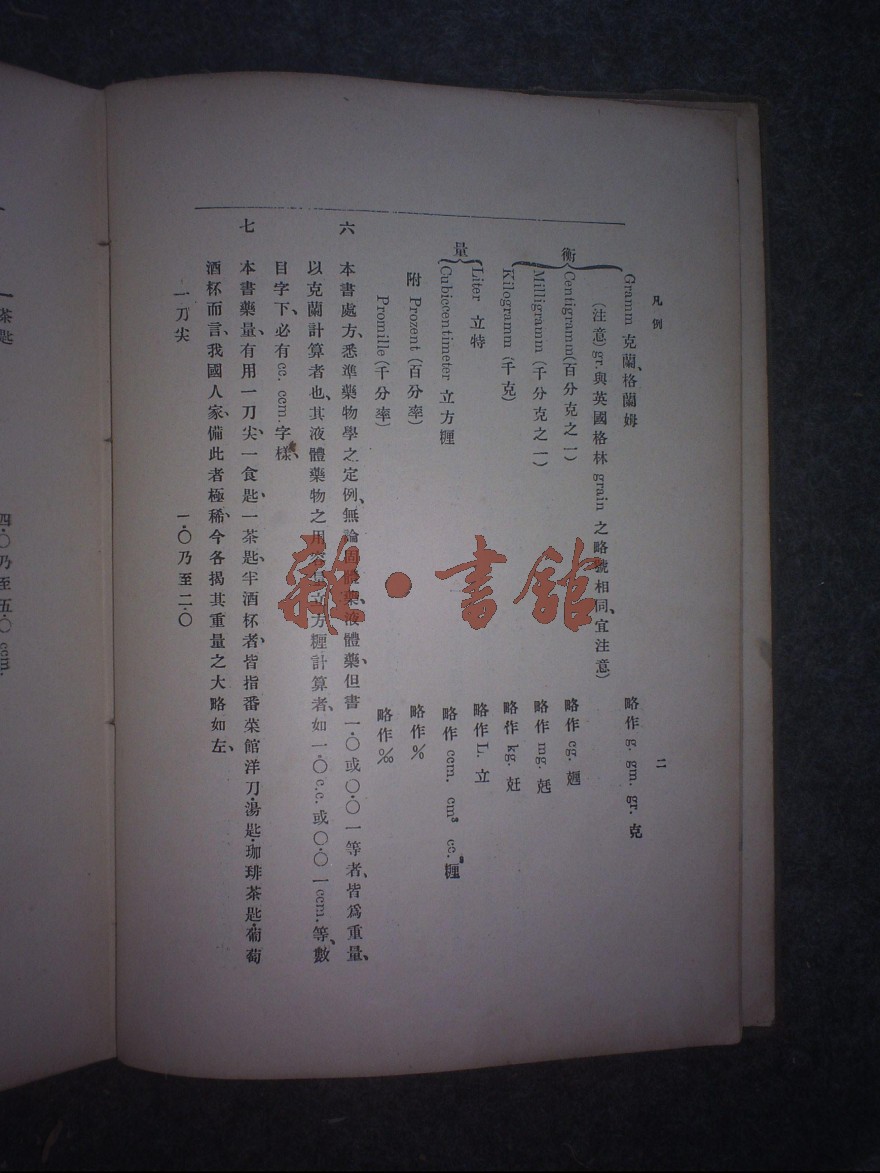 凡例
二
Gramm 克蘭、格蘭姆
略作 g. gm. gr. 克
(注意) gr. 與英國格林 grain 之略號相同、宜注意)
衡
Centigramm (百分克之一)
略作 cg. 兣
Milligramm (千分克之一)
略作 mg.
Kilogramm (千克)
略作 kg. 兛
量
Liter 立特
略作 L. 立
Cubiccentimeter 立方糎
略作 ccm. cm³ cc. 糎³
附 Prozent (百分率)
略作 %
Promille (千分率)
略作 ‰
六 本書處方、悉準藥物學之定例、無論固體藥、液體藥、但書一·〇或〇·〇一等者、皆爲重量、
以克蘭計算者也、其液體藥物之用容量立方糎計算者、如一·〇 c.c. 或〇·〇一 ccm. 等、數
目字下、必有 cc. ccm. 字樣、
七 本書藥量、有用一刀尖、一食匙、一茶匙、半酒杯者、皆指番菜館洋刀·湯匙·珈琲茶匙·葡萄
酒杯而言、我國人家、備此者極稀、今各揭其重量之大略如左、
一刀尖
一·〇乃至二·〇
一茶匙
四·〇乃至五·〇 ccm.
雜·書館